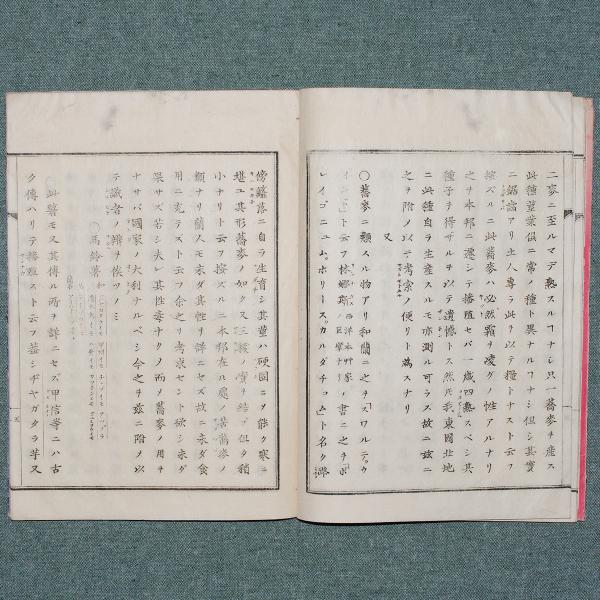 二麥ニ至ルマデ熟スルヿナシ只一蕎麥ヲ產ス
此種莖葉俱ニ常ノ種ト異ナルヿナシ但シ其實
ニ鋸齒アリ土人專ラ此ヲ以テ糧トナスト云フ
按ズルニ此蕎麥ハ必然霜ヲ凌グノ性アルナリ
之ヲ本邦ニ遷シテ播殖セバ一歲四熟スベシ其
種子ヲ得ザルヲ以テ遺憾トス然𪜈我東國北地
ニ此種自ラ生產スルモ亦測ル可ラズ故ニ茲ニ
之ヲ附ノ以テ考索ノ便リト爲スナリ
又
〇蕎麥ニ類スル物アリ和蘭ニ之ヲ「スワルテウ
ト云フ林娜斯ノ書ニ之ヲ「ポ
レイゴニュムホリース」カルダチコ」ト名ク
傍籬落ニ自ラ生育シ其莖ハ硬固ニメ能ク寒ニ
堪ユ其形蕎麥ノ如ク又三稜ノ實ヲ結ブ但タ稍
小ナリト云フ按ズルニ本邦在ル處ノ苦蕎麥ノ
類ナリ蘭人モ未ダ其性ヲ詳ニセズ故ニ未ダ食
用ニ充テズト云フ余之ヲ考求セント欲シ未ダ
果サズ若シ夫レ其性毒ナクメ而メ蕎麥ノ用ヲ
ナサバ國家ノ大利ナルベシ今之ヲ茲ニ附ノ以
テ識者ノ辨ヲ俟ツノミ
〇馬鈴薯
〇此薯モ又其傳ル所ヲ詳ニセズ甲信等ニハ古
ク傳ハリテ播殖スト云フ蓋シヂヤガタラ芋又